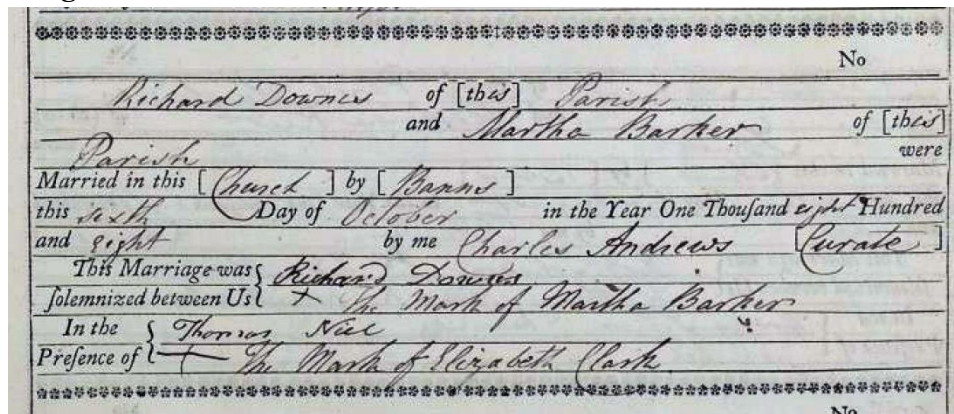 No
Richard Downes of [this] Parish
and Martha Barker of [this]
Parish were
Married in this [Church] by [Banns]
this sixth Day of October in the Year One Thouſand eight Hundred
and eight by me Charles Andrews [Curate]
This Marriage was { Richard Downes
ſolemnized between Us { X The Mark of Martha Barker
In the { Thomas
Preſence of { X The Mark of Elizabeth Clark
No